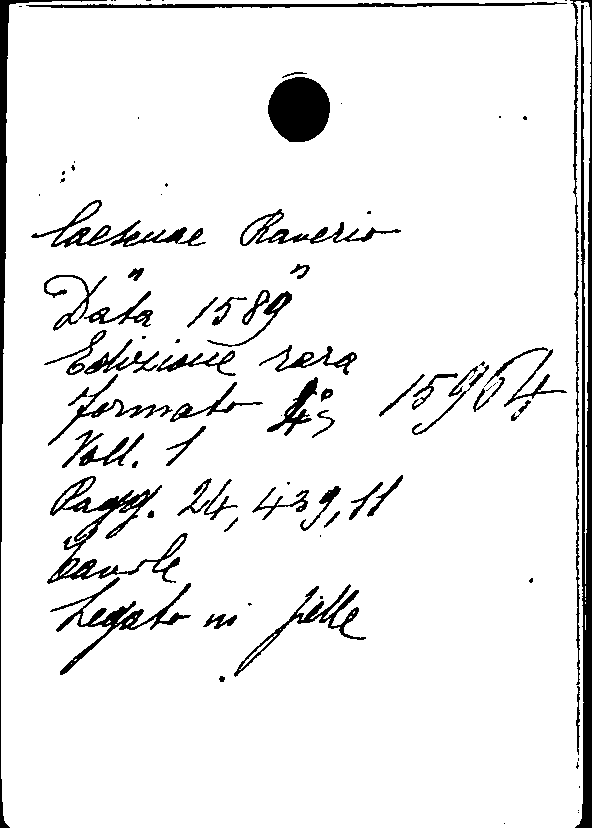 Caesenae Raverio
" "
Data 1589
Edizione rara
formato 4º 15964
Voll. 1
Pagg. 24, 439, 11
tavole
Legato in pelle